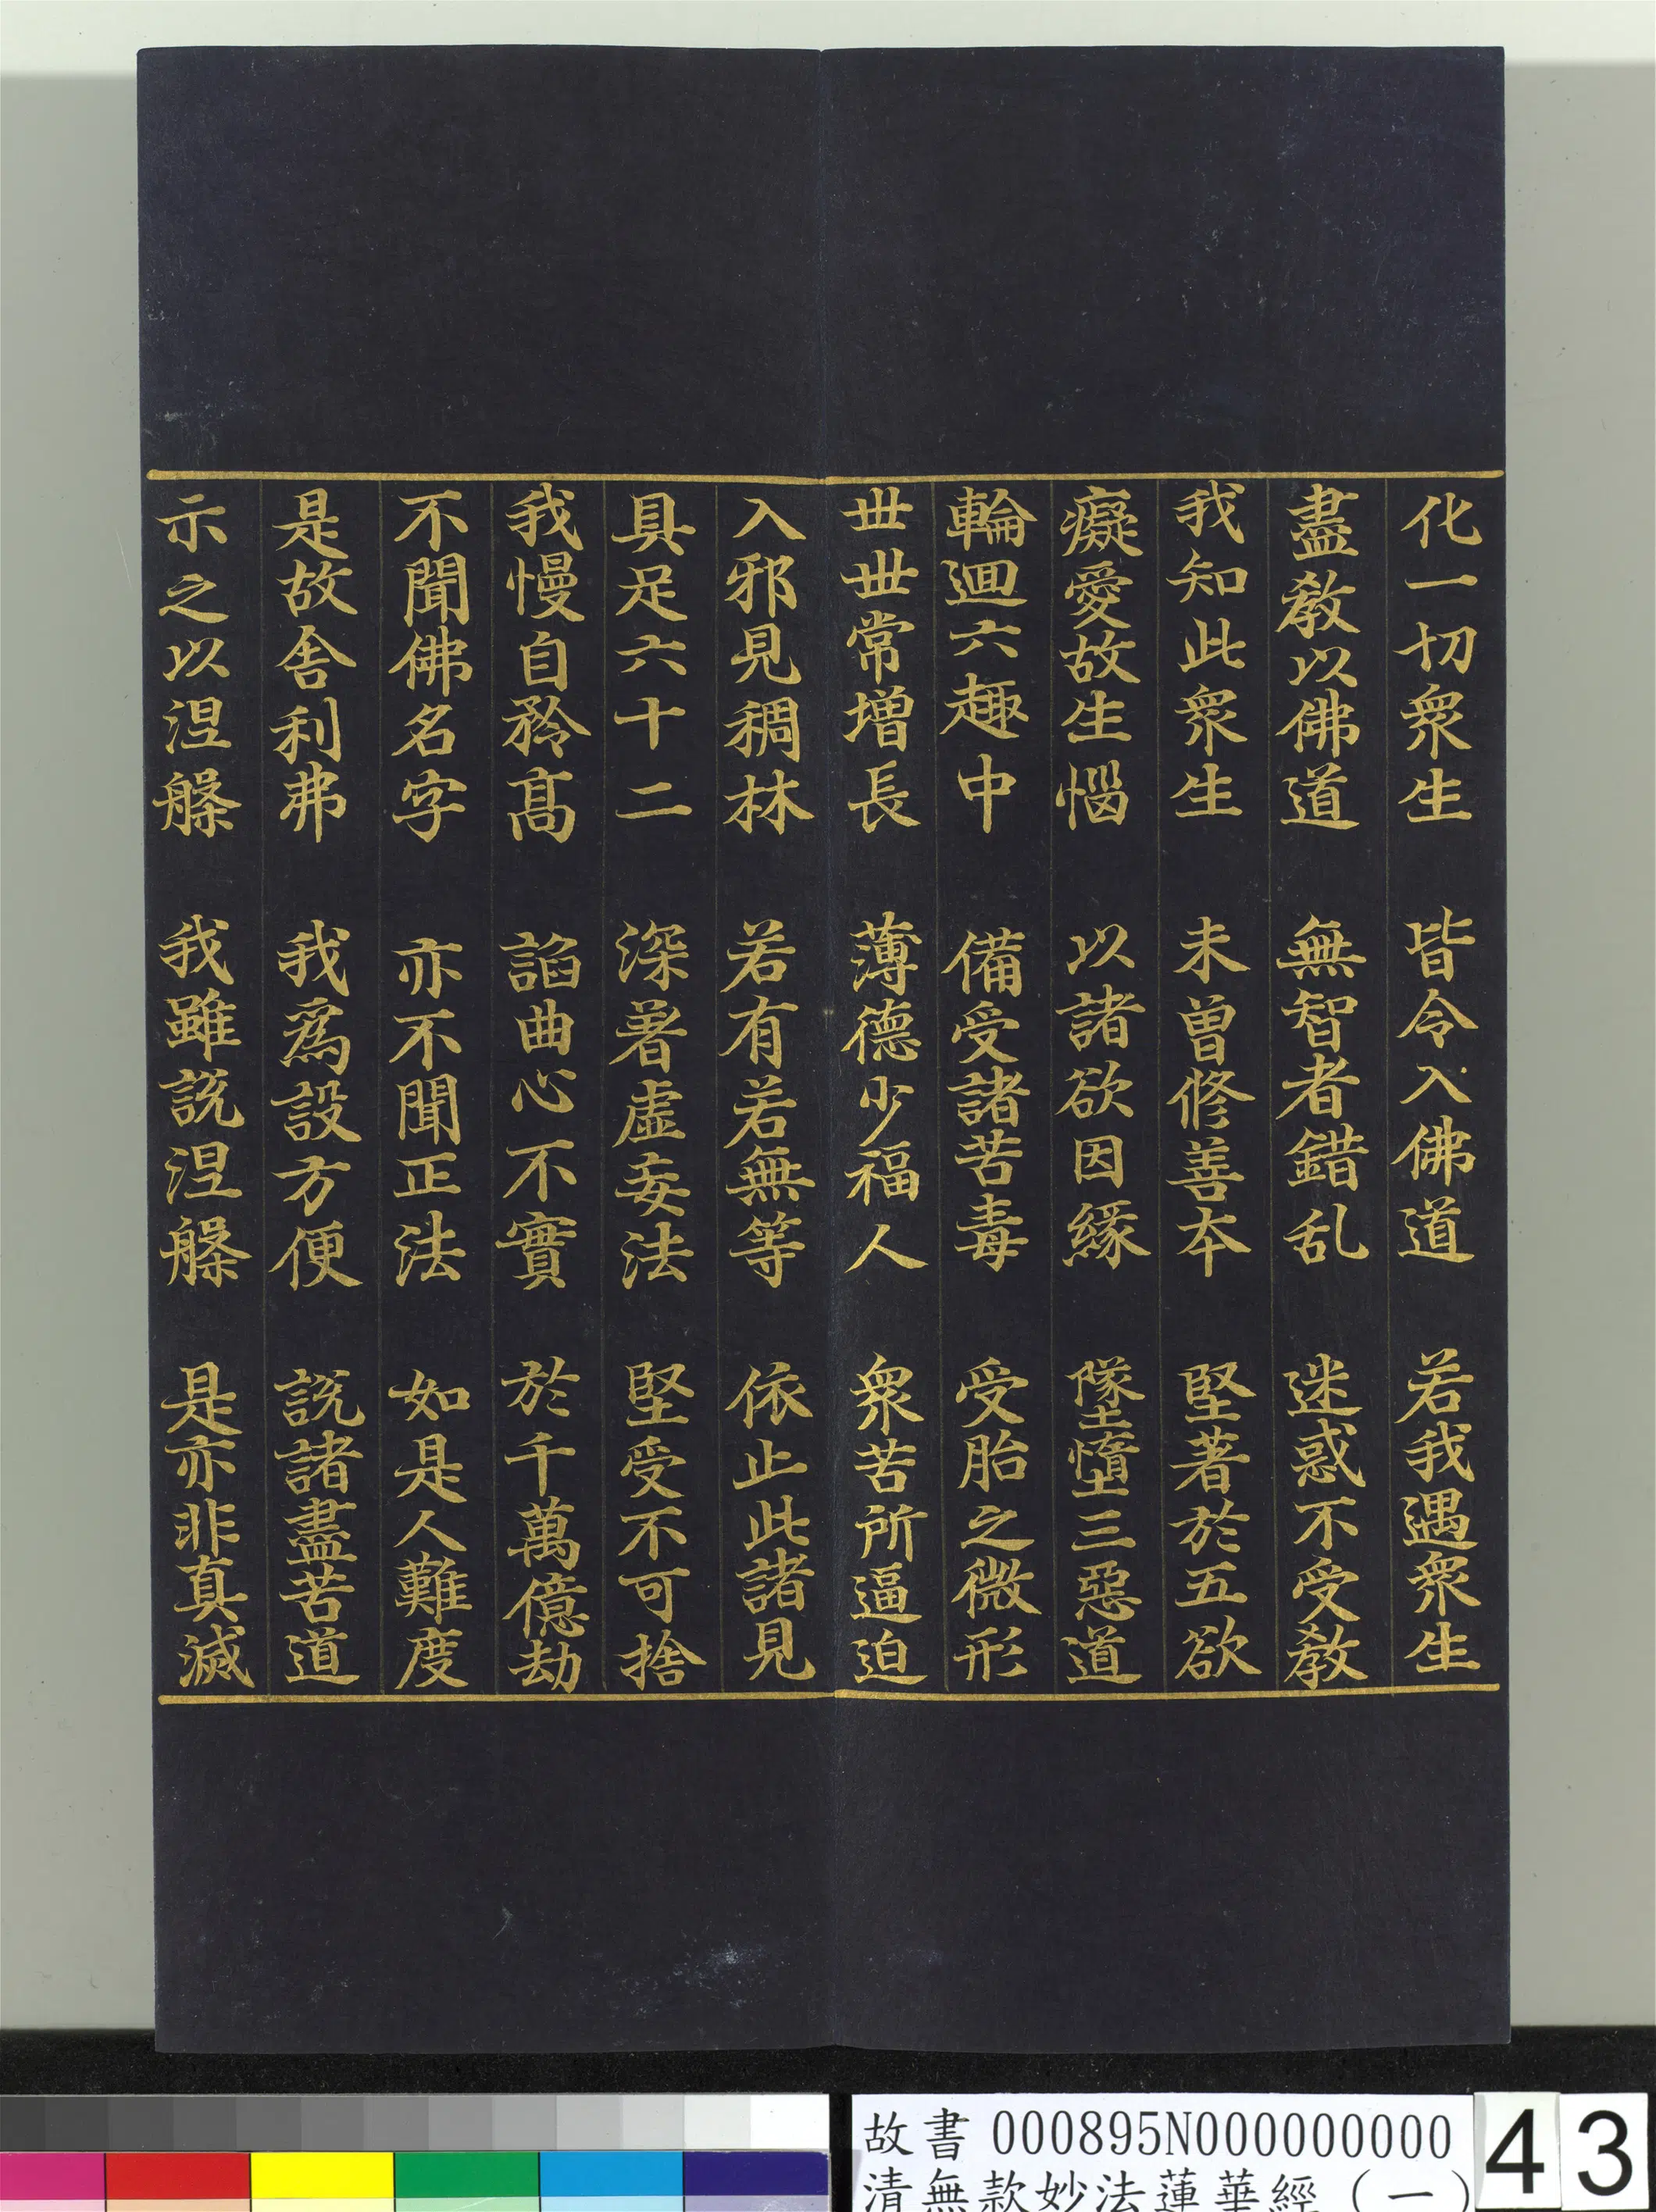 化一切衆生 皆令入佛道 若我遇衆生
盡教以佛道 無智者錯乱 迷惑不受教
我知此衆生 未曾修善本 堅著於五欲
癡愛故生惱 以諸欲因緣 墜墮三惡道
輪迴六趣中 備受諸苦毒 受胎之微形
世世常增長 薄德少福人 衆苦所逼迫
入邪見稠林 若有若無等 依止此諸見
具足六十二 深著虛妄法 堅受不可捨
我慢自矜髙 諂曲心不實 於千萬億劫
不聞佛名字 亦不聞正法 如是人難度
是故舍利弗 我爲設方便 說諸盡苦道
示之以涅槃 我雖說涅槃 是亦非真滅
故書 000895N000000000
清無款妙法蓮華經(一)
43